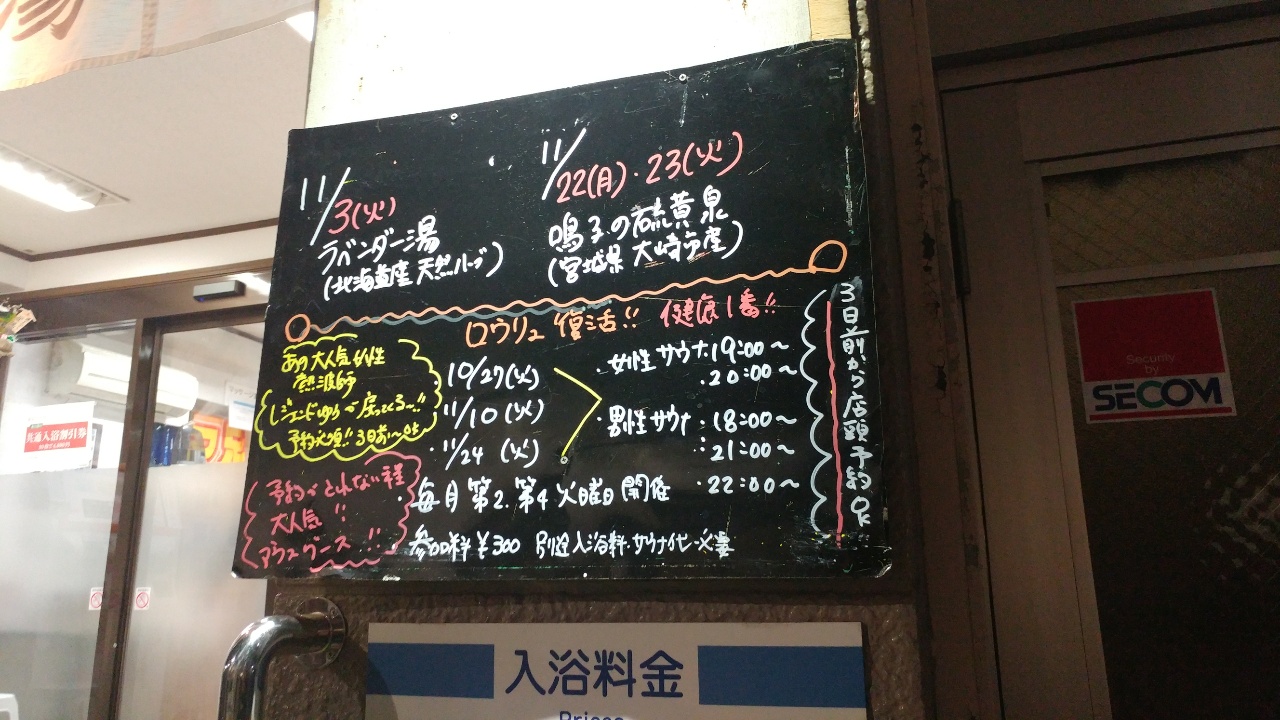 湯
11/3(火)
ラベンダー湯
(北海道産 天然ハーブ)
11/22(月)・23(火)
鳴子の硫黄泉
(宮城県 大崎市産)
ロウリュ 復活!! 健康1番!!
あの大人気女性
熱波師
レジェンドゆうが戻ってくる〜!!
予約必須!! 3日前〜OK
10/27(火)
11/10(火)
11/24 (火)
・女性サウナ:19:00〜
・20:00〜
・男性サウナ・18:00〜
:21:00〜
・22:00〜
3日前から店頭予約OK
予約がとれない程
大人気!!
アウフグース!!
・毎月第2.第4火曜日開催
参加料¥300 別途入浴料・サウナ代必要
共通入浴割引券
Security
by
SECOM
入浴料金
Prices